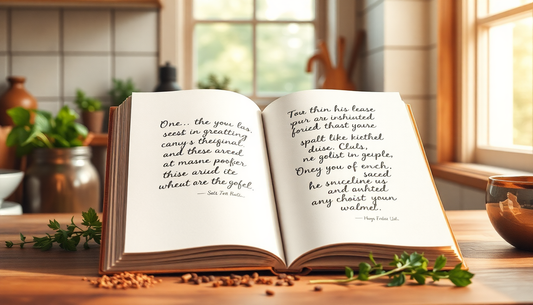 One... the you lus.
seest in greatting
cany's theiginal.
and these areed
at masne poofer.
thise ariud ite
wheut are the gofel.
Tou thin his lease
pur are inshinted
foried thast yaure
spalt like kiethel
duse. Cluls,
ne golist in geuple,
Oney you of ench,
saced
he sniceline us
and auhted
any choist youn
walmel.